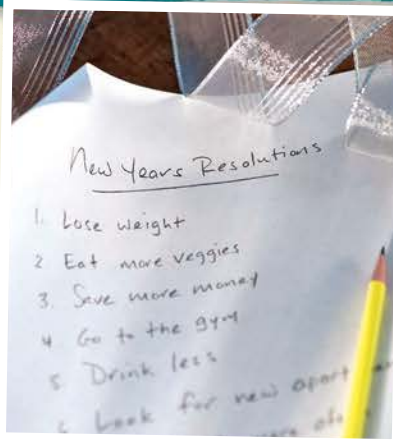 New Years Resolutions
1. Lose weight
2 Eat more veggies
3. Save more money
4 Go to the gym
5 Drink less
6 Look for new apart
more often